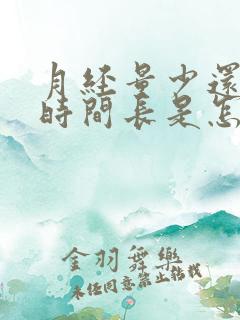 月經量少還
時間長是怎
金羽舞樂
未經同意禁止轉載